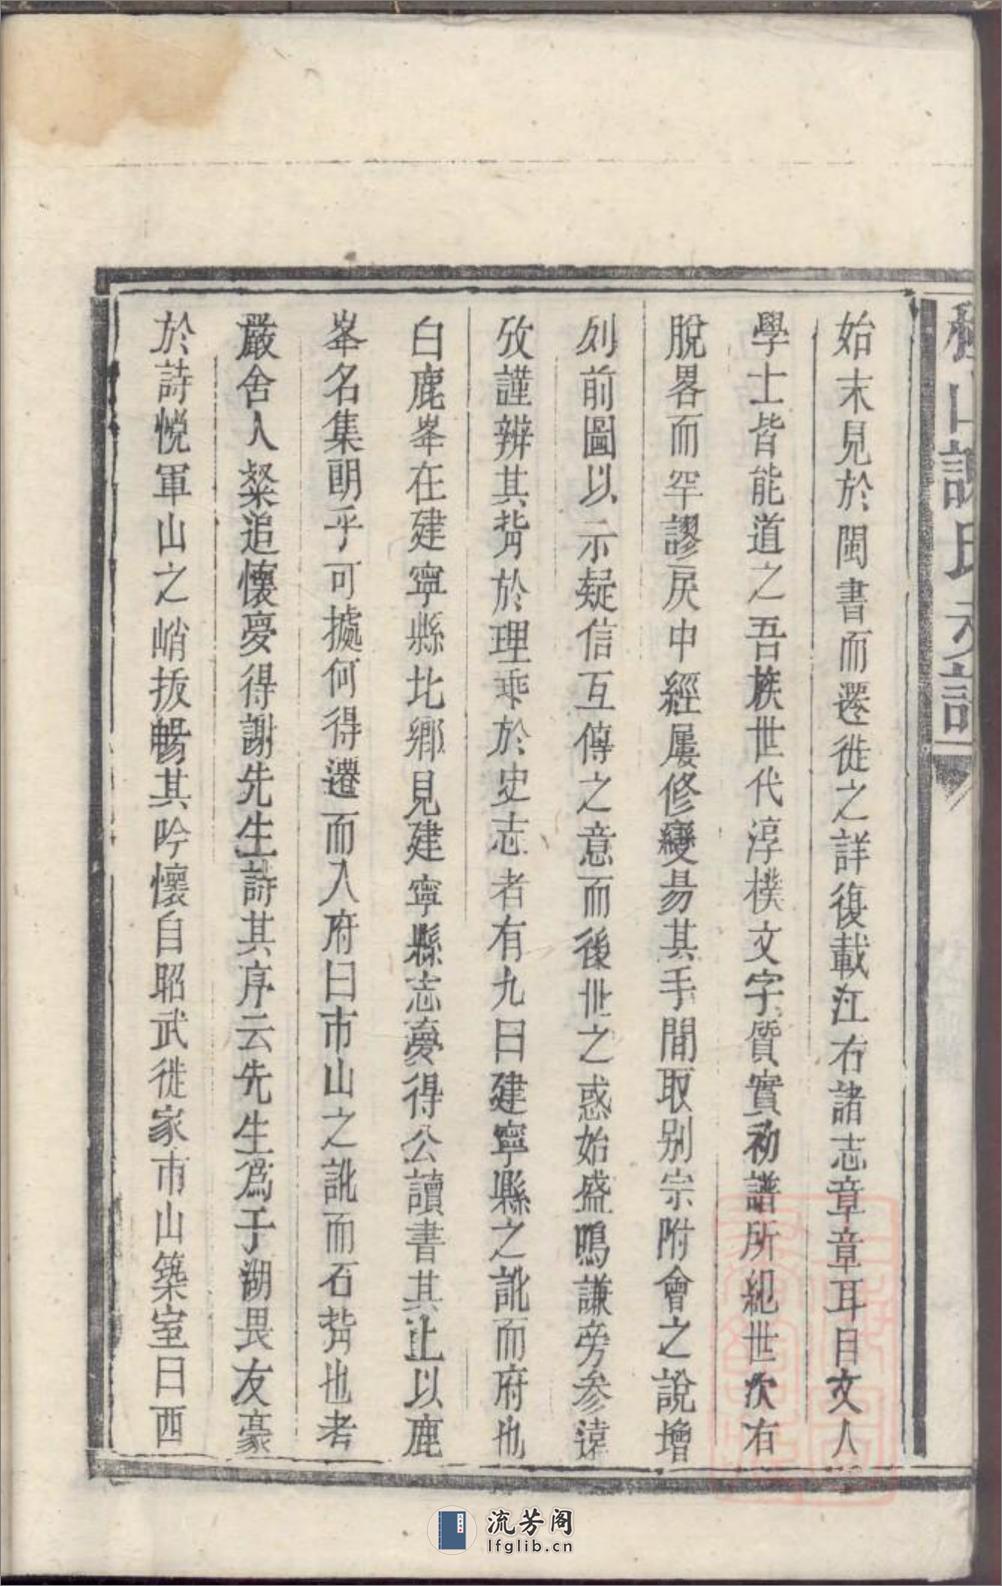 山謝氏六
始末見於閩書而遷徙之詳復載江右諸志章章耳目文人
學士皆能道之吾族世代淳樸文字質實初譜所紀世次右
脫畧而罕謬戾中經屢修變易其手間取别宗附會之說增
列前圖以示疑信互傳之意而後世之惑始盛鳴謙旁参遠
攷謹辨其背於理乖於史志者有九曰建寧縣之訛而府也
白鹿峯在建寧縣北鄉見建寧縣志夢得公讀書其上以鹿
峯名集明乎可據何得遷而入府曰市山之訛而石背也考
嚴舍人粲追懷夢得謝先生詩其序云先生為于湖畏友豪
於詩悅軍山之峭拔暢其吟懷自昭武徙家市山築室曰西
流芳阁
lfglib.cn